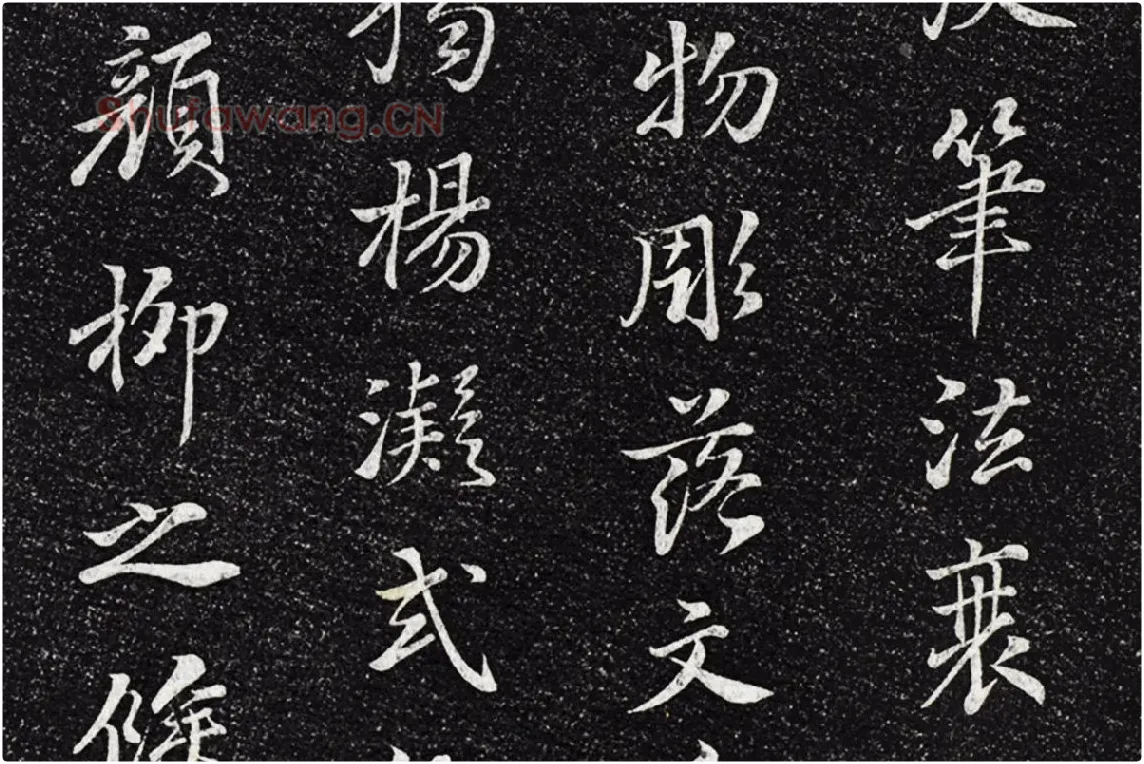 筆法衰
物彫落文
楊凝式
顏柳之
Shufawang.CN